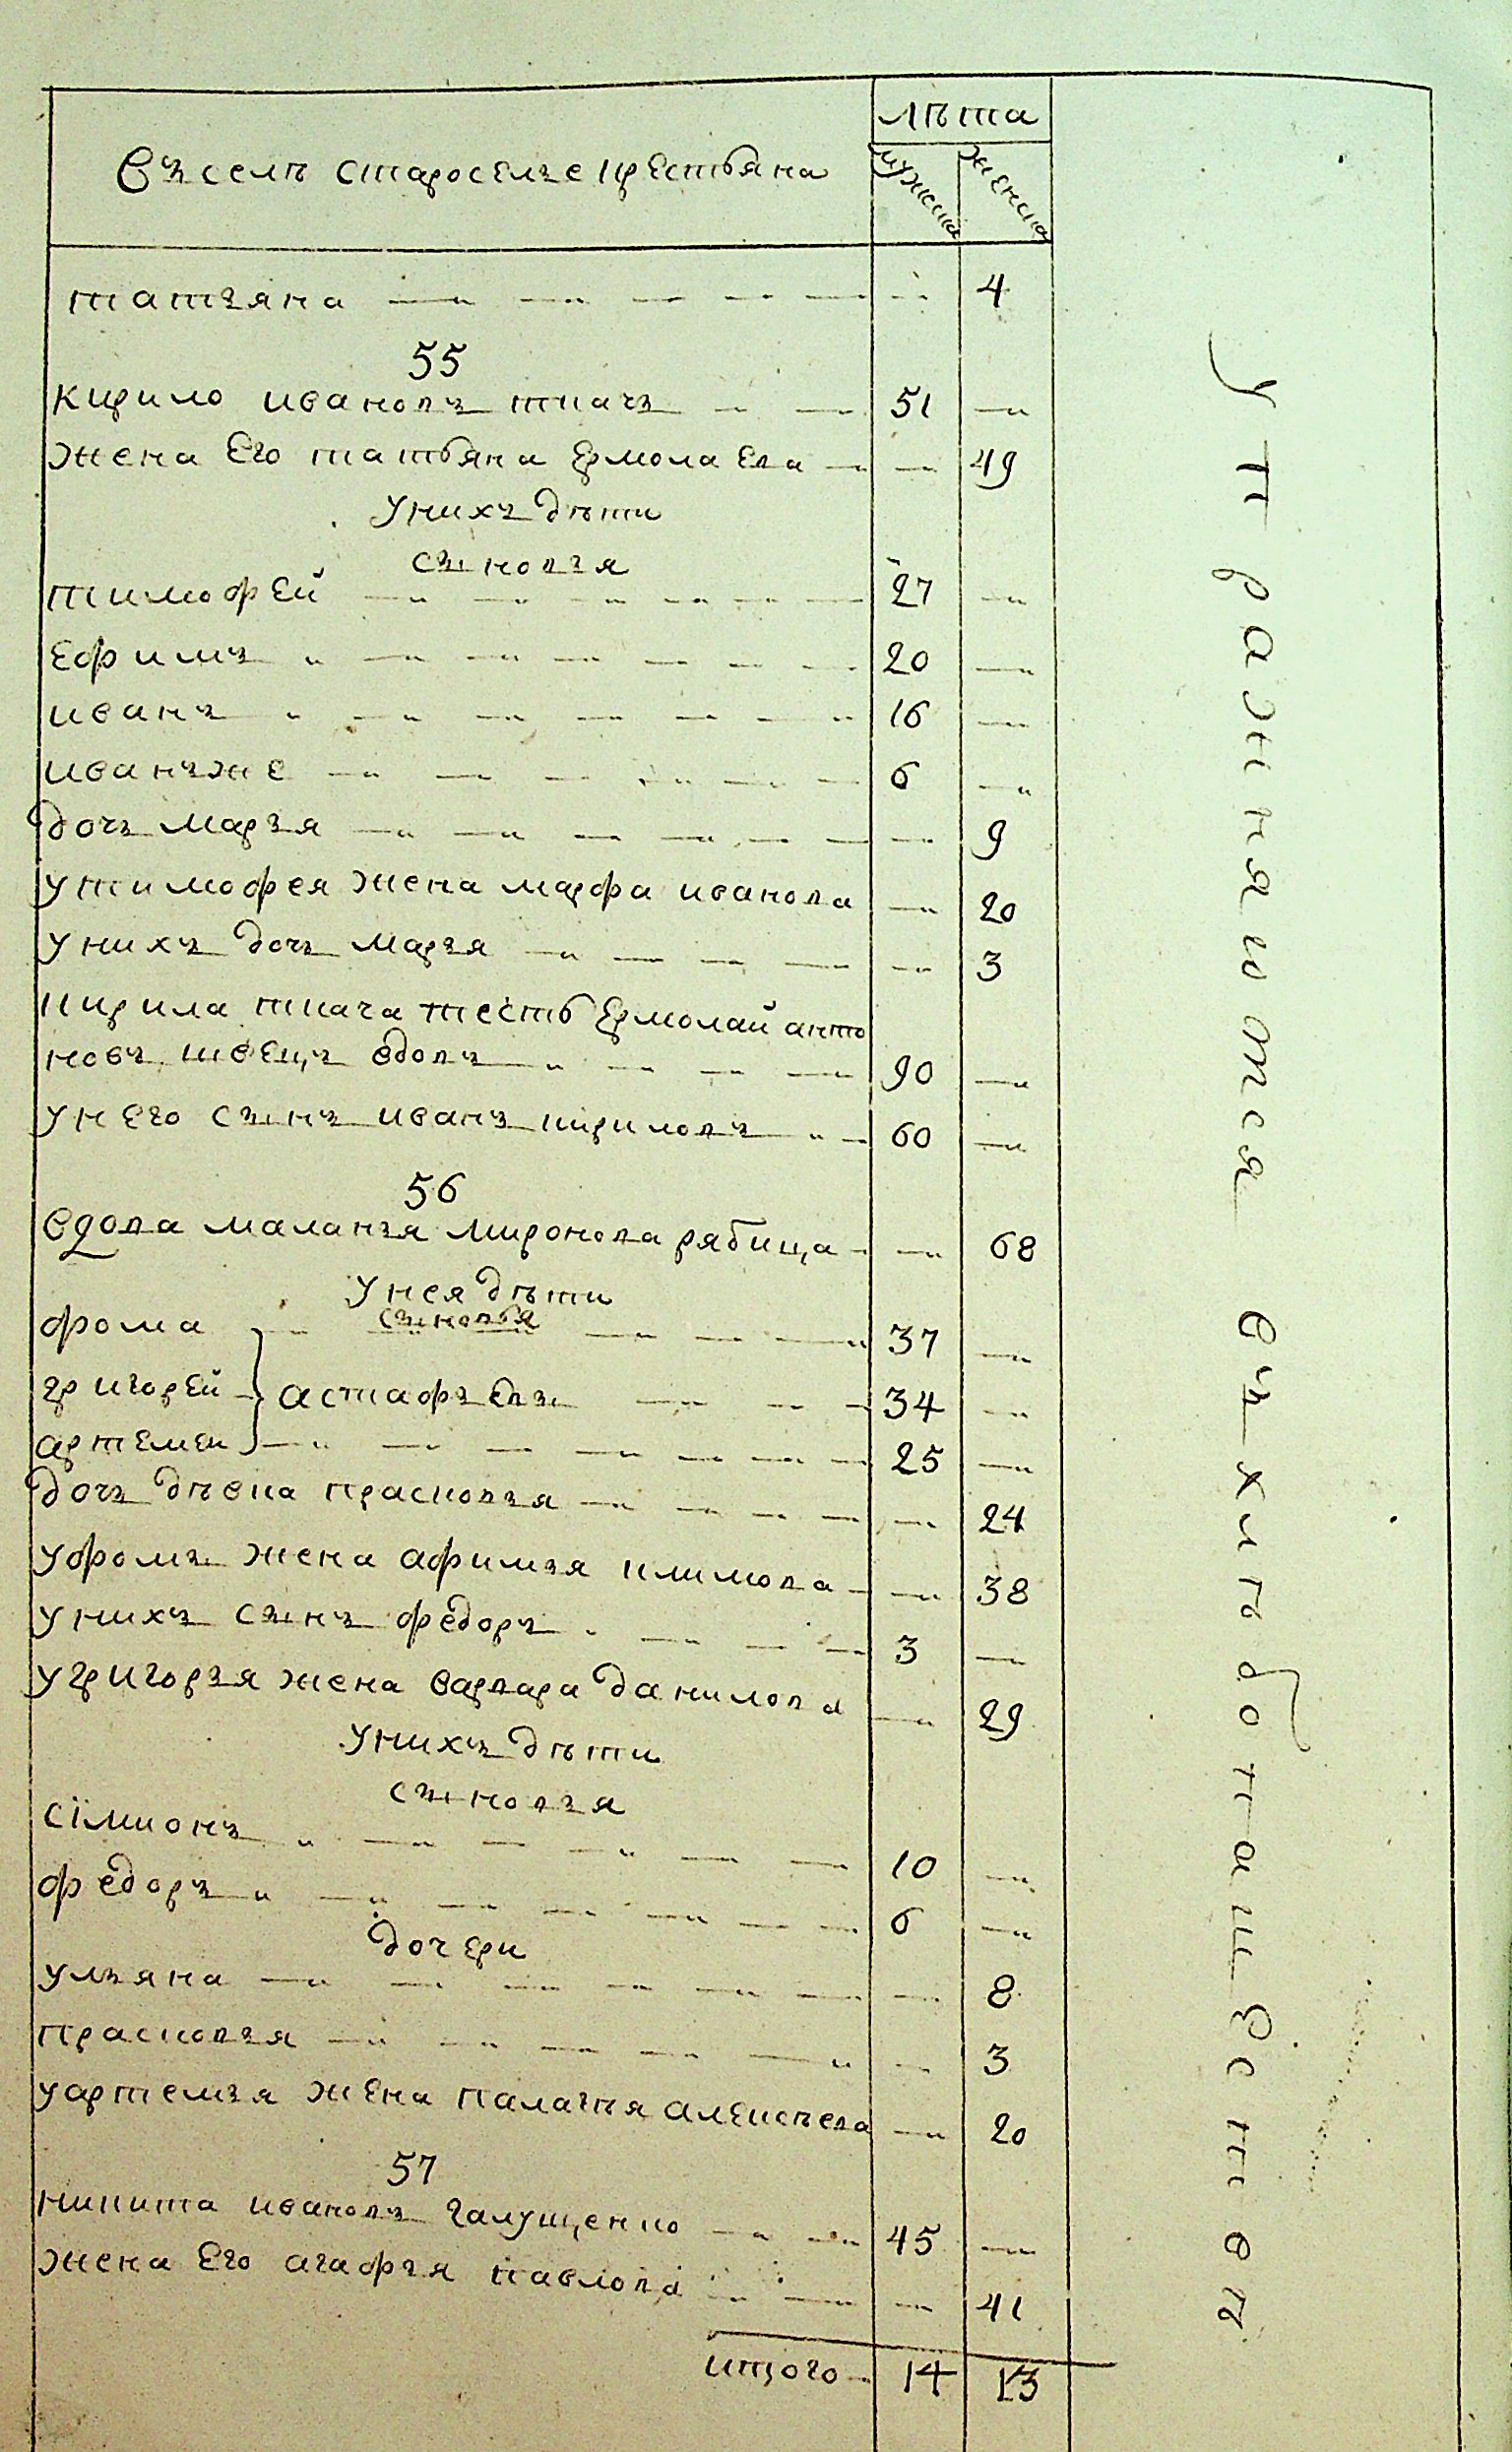 Въ селѣ староселье крестьяна
лѣта
мужска
женска
татьяна 4
55
Кирило ивановъ ткачъ 51
жена Его татьяна Ермолаева 49
Унихъ дѣти
сыновья
тимофей 27
Ефимъ 20
иванъ 16
иванъже 6
дочь марья 9
утимофея жена марфа иванова 20
унихъ дочь марья 3
кирила ткача тесть Ермолай анто
новъ швецъ вдовъ 90
унего сынъ иванъ кириловъ 60
56
Вдова маланья миронова рябица 68
унея дѣти
сыновья
фома 37
григорей астафьевы 34
артемеи 25
дочь дѣвка прасковья 24
уфомы жена афимья климова 38
унихъ сынъ федоръ 3
угригорья жена варвара данилова 29
унихъ дѣти
сыновья
сїмионъ 10
федоръ 6
дочери
ульяна 8
прасковья 3
уартемья жена палагѣя алексѣева 20
57
никита ивановъ галущенко 45
жена Его агафья павлова 41
итого 14 13
Упражняются въ хлѣбопашествѣ